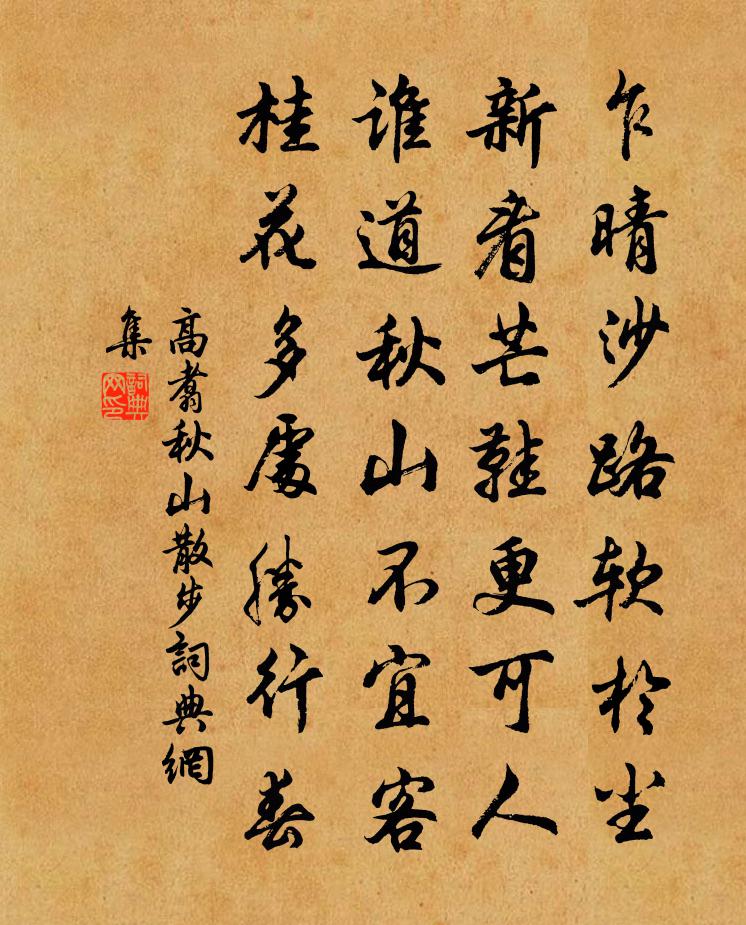 乍晴沙路软於尘
新着芒鞋更可人
谁道秋山不宜客
桂花多處勝行春
高翥秋山散步詞典網
集
詞典
网印